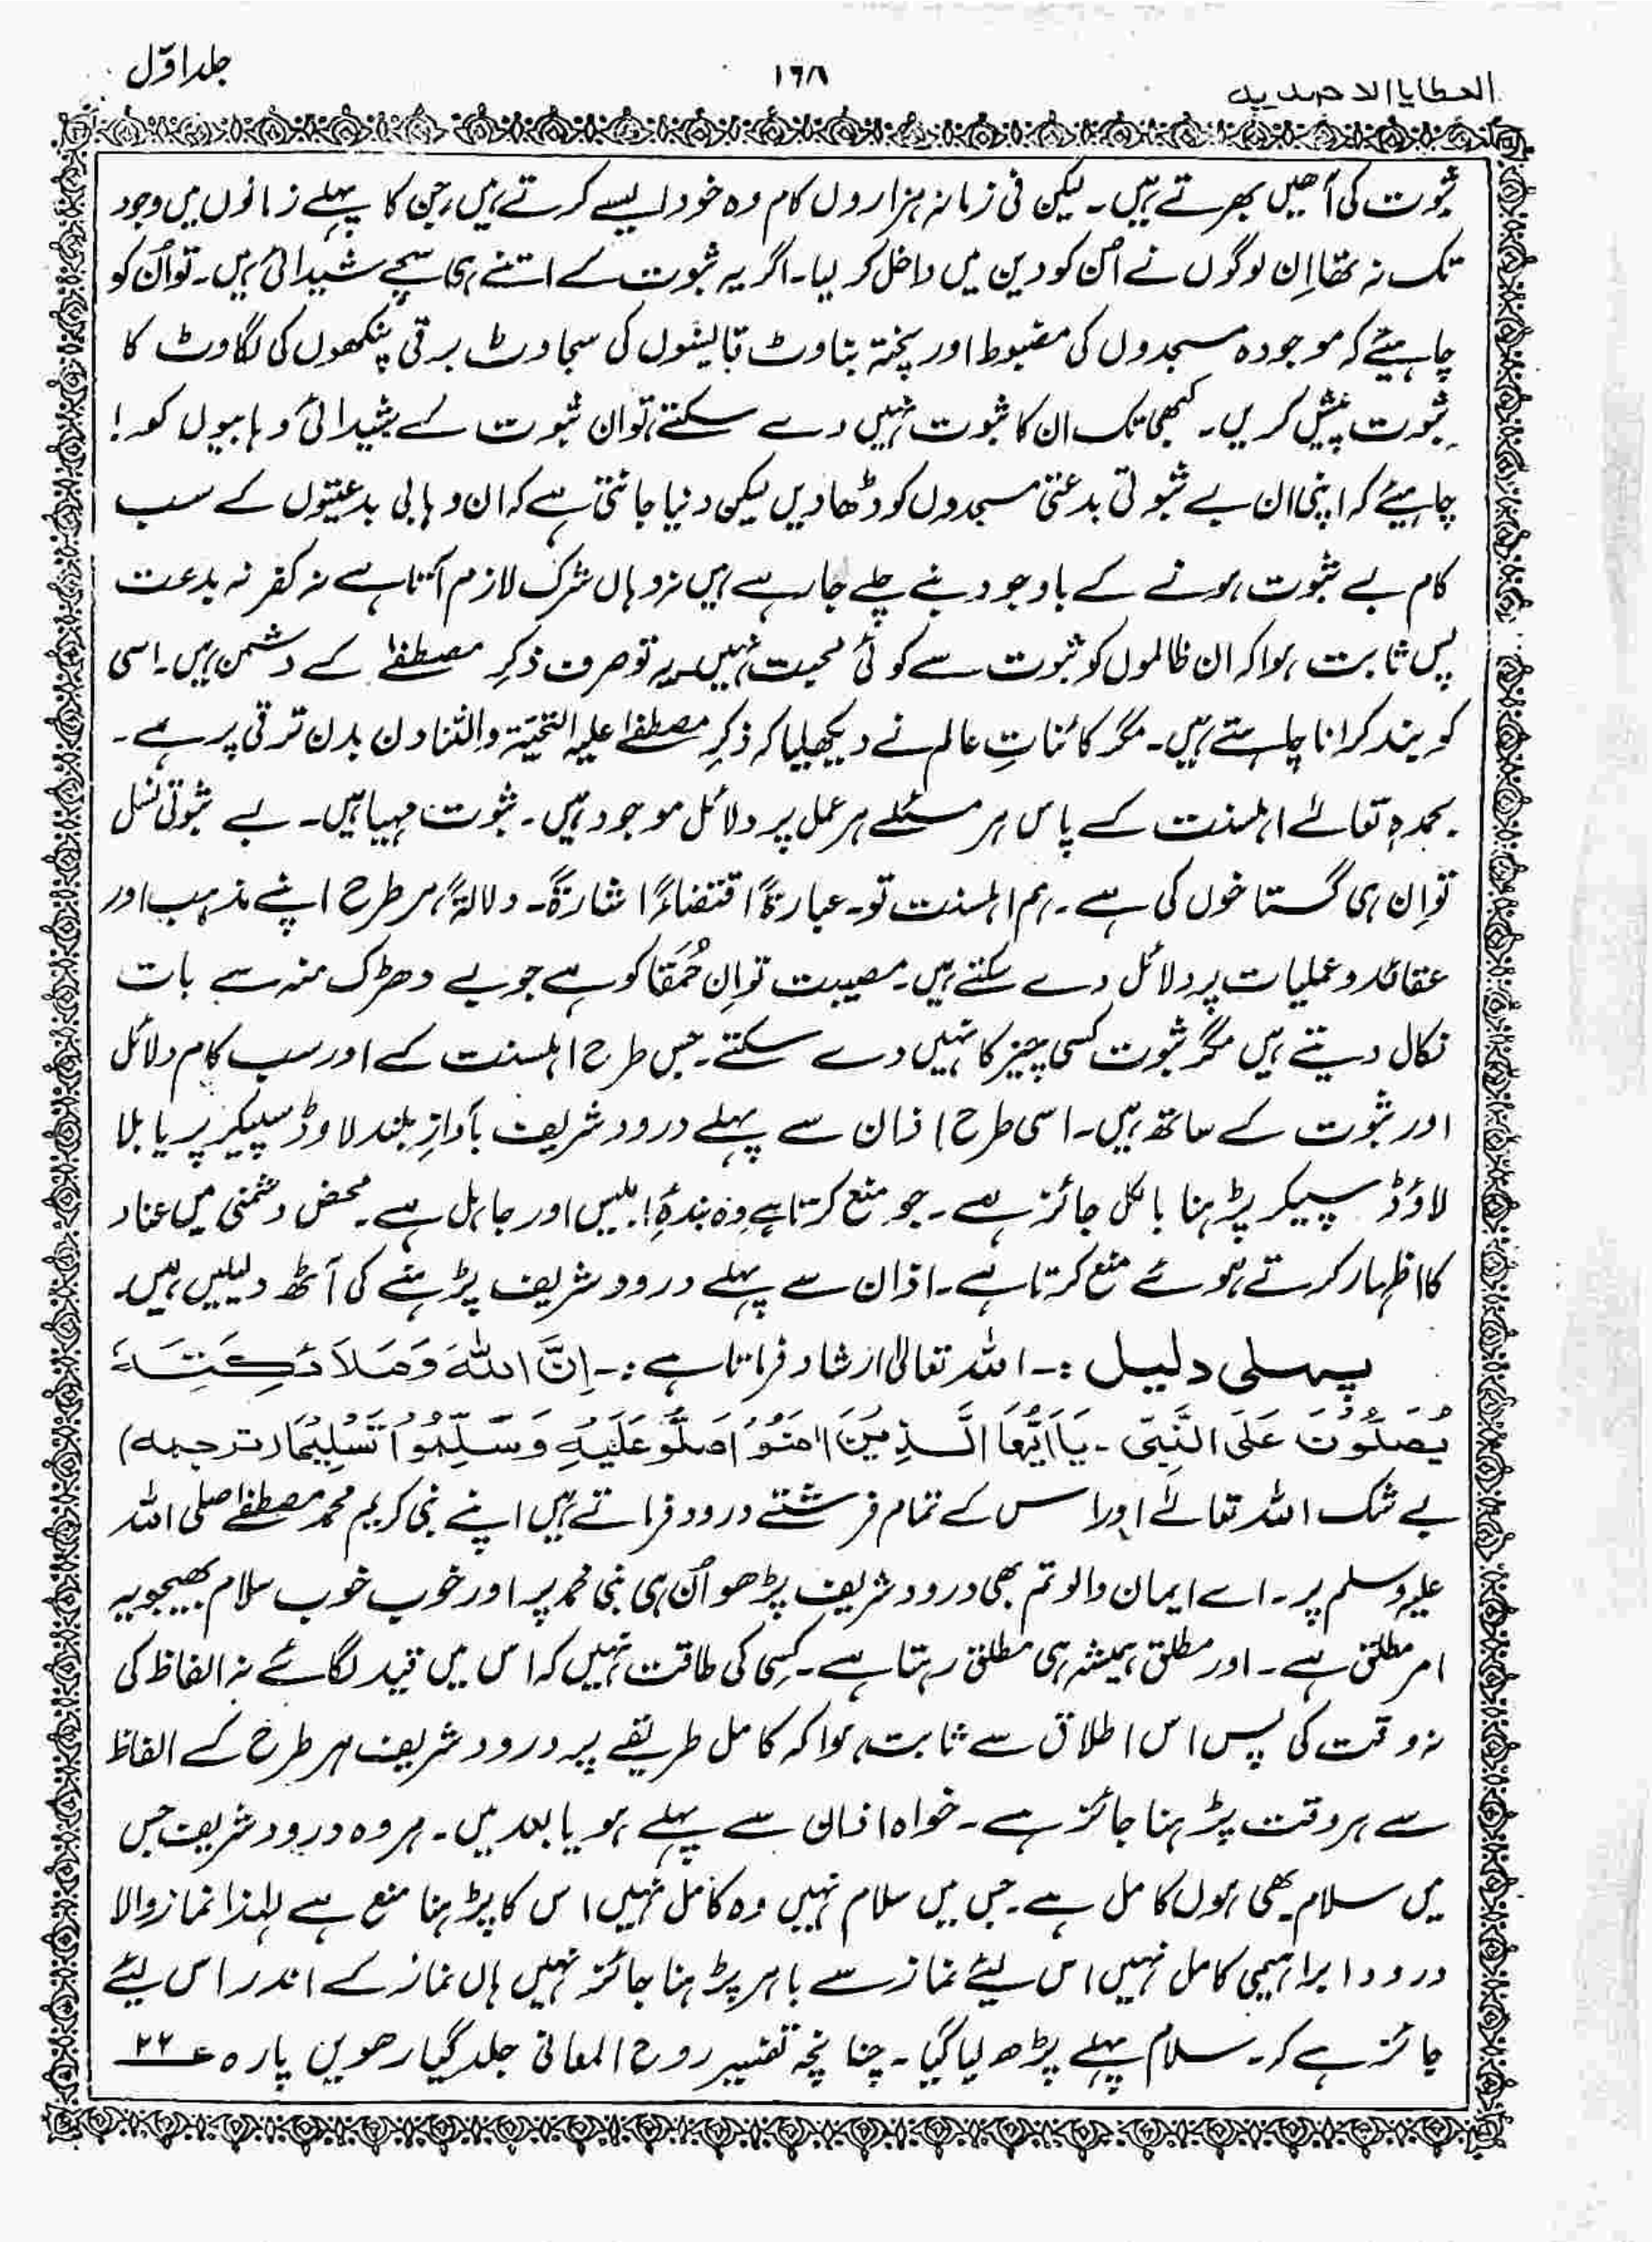 العطایا الاحمدیہ
۱۶۸
جلد اوّل
ثبوت کی آھیں بھرتے ہیں۔ لیکن فی زمانہ ہزاروں کام وہ خود ایسے کرتے ہیں جن کا پہلے زمانوں میں وجود
تک نہ تھا اِن لوگوں نے اُس کو دین میں داخل کر لیا۔ اگر یہ ثبوت کے اتنے ہی سچے شیدائی ہیں۔ تو اُن کو
چاہیئے کہ موجودہ مسجدوں کی مضبوط اور پختہ بناوٹ قالینوں کی سجاوٹ برقی پنکھوں کی لگاوٹ کا
ثبوت پیش کریں۔ کبھی تک ان کا ثبوت نہیں دے سکتے تو ان ثبوت کے شیدائی وہابیوں کو!
چاہیئے کہ اپنی ان بے ثبوتی بدعتی مسجدوں کو ڈھا دیں لیکن دنیا جانتی ہے کہ ان وہابی بدعتیوں کے سب
کام بے ثبوت ہونے کے باوجود بنے چلے جا رہے ہیں نہ وہاں شرک لازم آتا ہے نہ کفر نہ بدعت
پس ثابت ہوا کہ ان ظالموں کو ثبوت سے کوئی محبت نہیں یہ تو صرف ذکرِ مصطفےٰ کے دشمن ہیں۔ اسی
کو بند کرانا چاہتے ہیں۔ مگر کائناتِ عالم نے دیکھ لیا کہ ذکرِ مصطفےٰ علیہ التحیۃ والثنا دن بدن ترقی پر ہے۔
بحمدہٖ تعالےٰ اہلسنت کے پاس ہر مسئلے ہر عمل پر دلائل موجود ہیں۔ ثبوت مہیا ہیں۔ بے ثبوتی نسل
تو اِن ہی گستاخوں کی ہے۔ ہم اہلسنت تو۔ عبارۃً اقتضاءً اشارۃً۔ دلالۃً ہر طرح اپنے مذہب اور
عقائد و عملیات پر دلائل دے سکتے ہیں۔ مصیبت تو اِن حُمَقَا کو ہے جو بے دھڑک منہ سے بات
نکال دیتے ہیں مگر ثبوت کسی چیز کا نہیں دے سکتے۔ جس طرح اہلسنت کے اور سب کام دلائل
اور ثبوت کے ساتھ ہیں۔ اسی طرح اذان سے پہلے درود شریف بآوازِ بلند لاوڈ سپیکر پر یا بلا
لاؤڈ سپیکر پڑہنا بالکل جائز ہے۔ جو منع کرتا ہے وہ بندۂِ ابلیس اور جاہل ہے۔ محض دشمنی میں عناد
کا اظہار کرتے ہوئے منع کرتا ہے۔ اذان سے پہلے درود شریف پڑہنے کی آٹھ دلیلیں ہیں۔
پہلی دلیل :۔ اللہ تعالیٰ ارشاد فرماتا ہے :۔ اِنَّ اللہَ وَمَلَائِکَتَہٗ
یُصَلُّوْنَ عَلَی النَّبِیِّ ۔ یَا اَیُّھَا الَّذِیْنَ اٰمَنُوْا صَلُّوْ عَلَیْہِ وَسَلِّمُوْا تَسْلِیْمًا (ترجمہ)
بے شک اللہ تعالےٰ اور اس کے تمام فرشتے درود فرماتے ہیں اپنے نبی کریم محمد مصطفےٰ صلی اللہ
علیہ وسلم پر۔ اے ایمان والو تم بھی درود شریف پڑھو اُن ہی نبی محمد پر اور خوب خوب سلام بھیجو یہ
امر مطلق ہے۔ اور مطلق ہمیشہ ہی مطلق رہتا ہے۔ کسی کی طاقت نہیں کہ اس میں قید لگائے نہ الفاظ کی
نہ وقت کی پس اس اطلاق سے ثابت ہوا کہ کامل طریقے پر درود شریف ہر طرح کے الفاظ
سے ہر وقت پڑہنا جائز ہے۔ خواہ اذان سے پہلے ہو یا بعد میں۔ ہر وہ درود شریف جس
میں سلام بھی ہوں کامل ہے۔ جس میں سلام نہیں وہ کامل نہیں اس کا پڑہنا منع ہے لہٰذا نماز والا
درود ابراہیمی کامل نہیں اس لیئے نماز سے باہر پڑہنا جائز نہیں ہاں نماز کے اندر اس لیئے
جائز ہے کہ۔ سلام پہلے پڑھ لیا گیا۔ چنانچہ تفسیر روح المعانی جلد گیارھویں پارہ ع۲۲